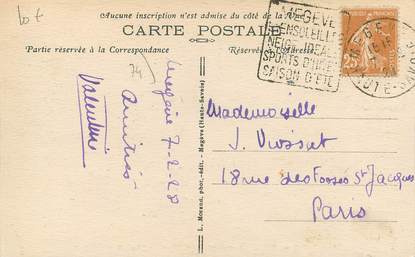 10 €
Aucune inscription n'est admise du côté de la
CARTE POSTALE
Partie réservée à la Correspondance
Réservé
MEGEVE
ENSOLEILLE
NEIGE IDEALE
SPORTS D'HIVER
SAISON D'ETE
25
74
Megève 7-2-28
Amitiés
Valentine
L. Morand, phot.-édit. - Megève (Haute-Savoie)
Mademoiselle
J. Vuosset
18 rue des Fossés St Jacques
Paris